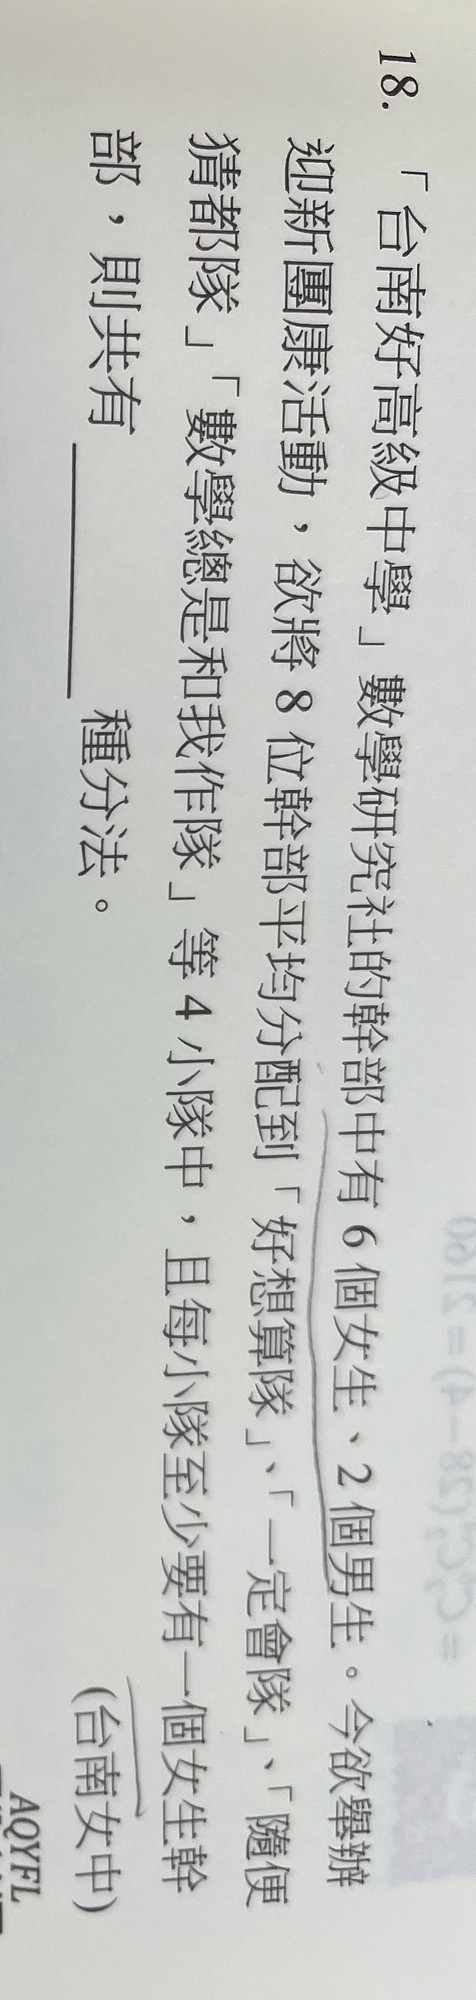 18. 「台南好高級中學」數學研究社的幹部中有 6 個女生、2 個男生。今欲舉辦
迎新團康活動,欲將 8 位幹部平均分配到「好想算隊」、「一定會隊」、「隨便
猜都隊」「數學總是和我作隊」等 4 小隊中,且每小隊至少要有一個女生幹
部,則共有______種分法。
(台南女中)
AQYFL